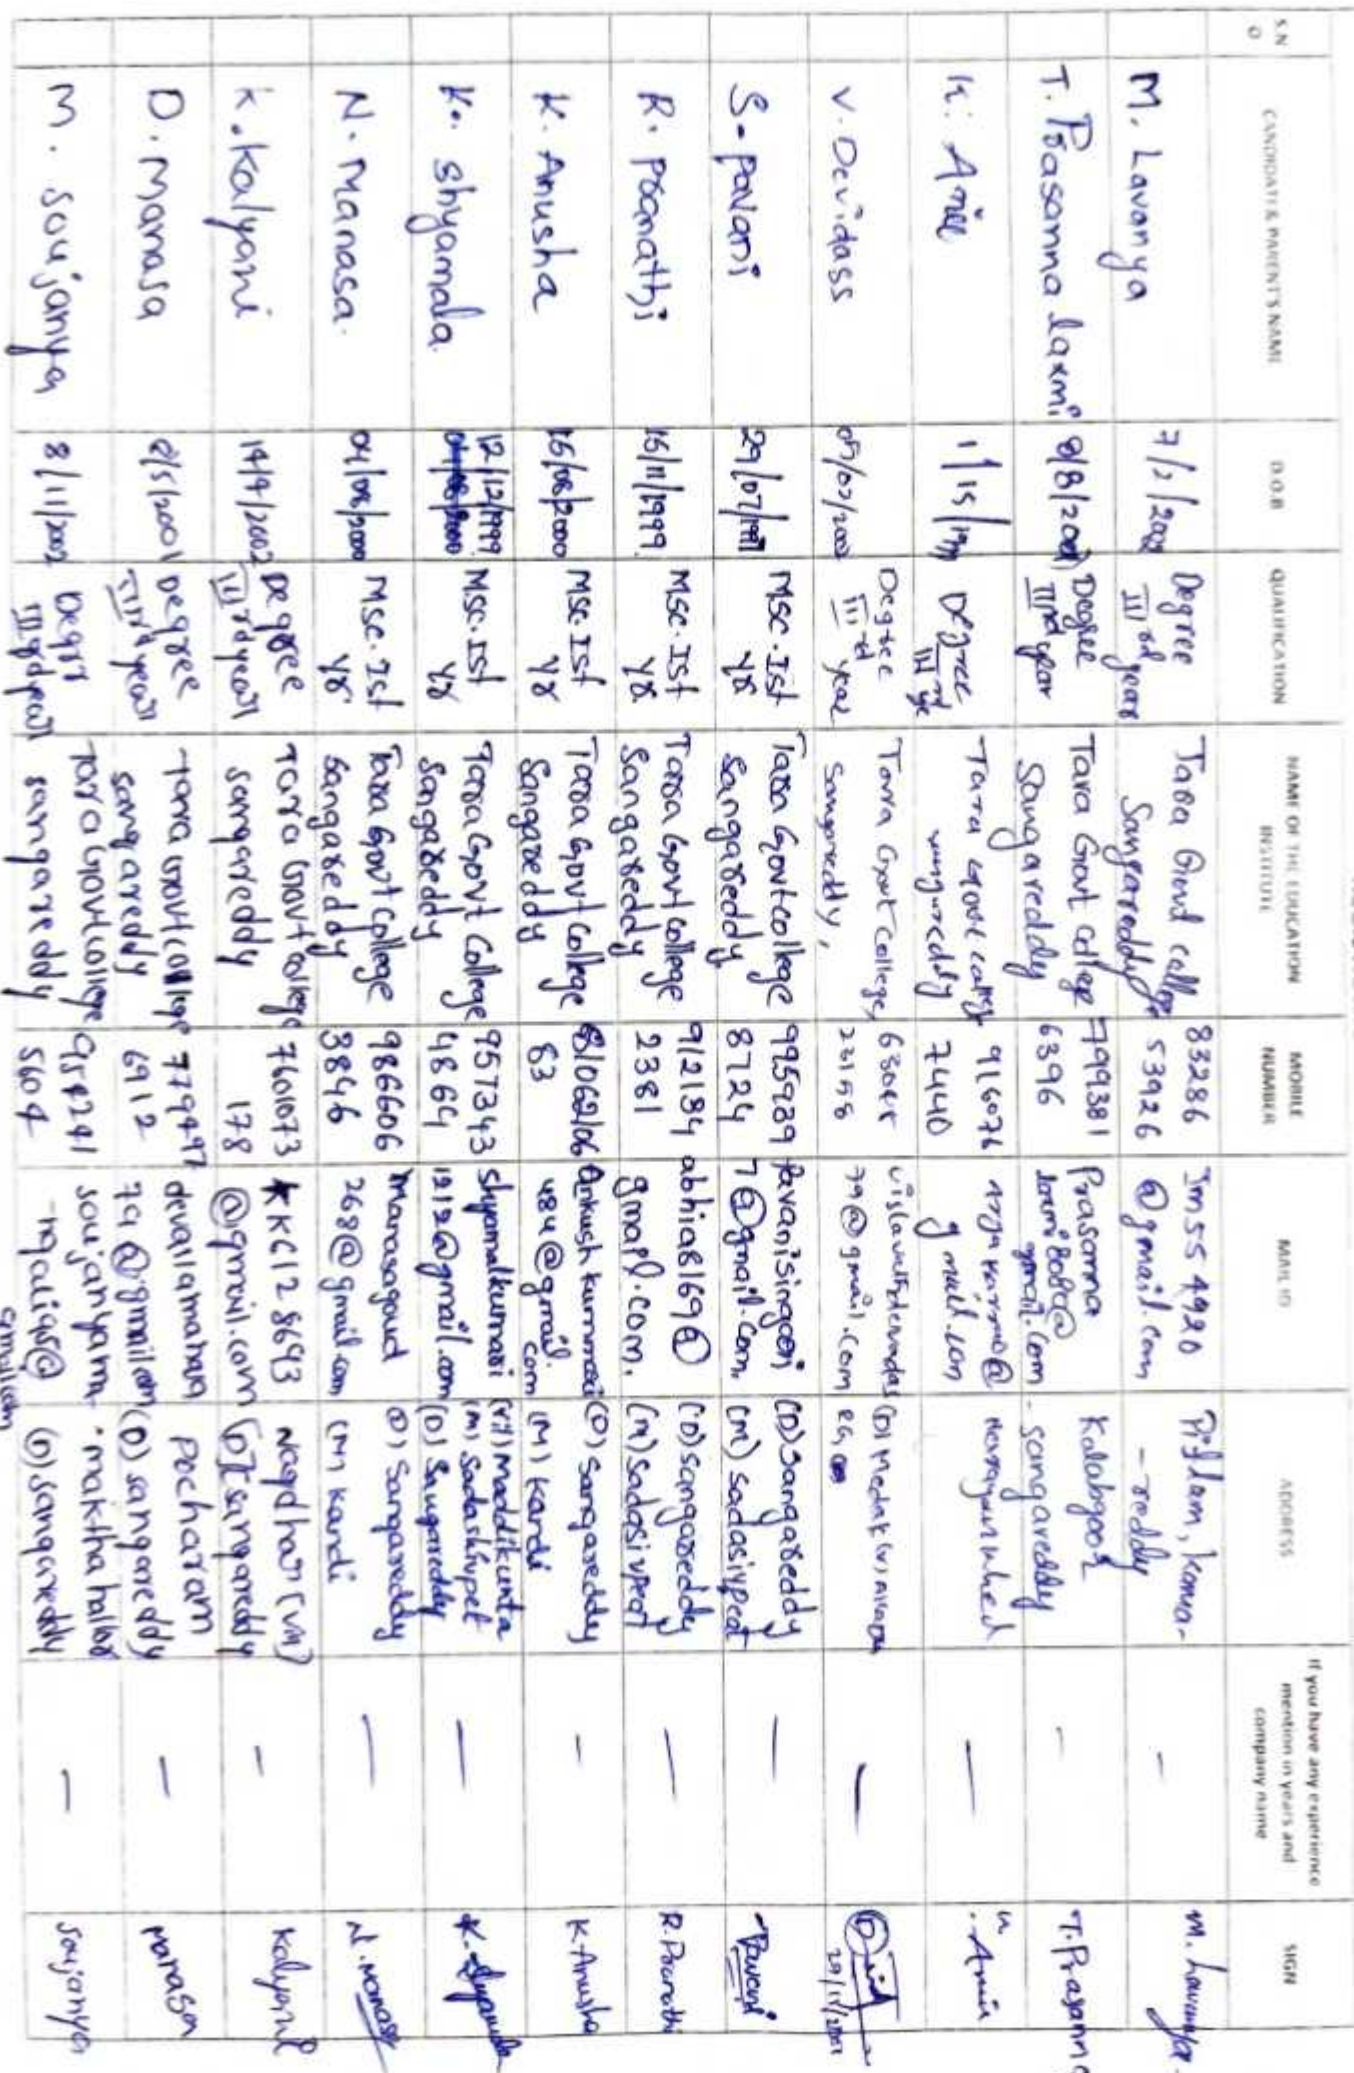 S.N
O
CANDIDATE & PARENT'S NAME
D.O.B
QUALIFICATION
NAME OF THE EDUCATION
INSTITUTE
MOBILE
NUMBER
MAIL ID
ADDRESS
If you have any experience
mention in years and
company name
SIGN
M. Lavanya
Degree
III rd year
Tara Govt college
Sangareddy
83286
53926
Jm554920
@gmail.com
Pitlam, kama-
-reddy
-
M. Lavanya
T. Prasanna laxmi
Degree
III rd year
Tara Govt college
Sangareddy
799381
6396
Prasanna
@
gmail.com
Kalabgoor
-sangareddy
-
T. Prasanna
K.
Degree
III rd
Tara Govt college
sangareddy
916076
7440
@
gmail.com
—
V. Devidass
Degree
III rd year
Tara Govt College,
Sangareddy,
79@gmail.com
(D) Medak (v)
—
S. pavani
29/07/
Msc. Ist
yr
Tara Govt college
Sangareddy
995939
8724
pavanisingoji
7@gmail.com
(D) Sangareddy
(m) sadasivpeat
—
Pavani
R. pranathi
15/11/1999
Msc. Ist
yr
Tara Govt college
Sangareddy
912134
2381
abhia8169@
gmail.com.
(D) sangareddy
(m) sadasivpeat
—
R. Pranathi
K. Anusha
/08/2000
Msc. Ist
yr
Tara Govt College
Sangareddy
81062106
83
Ankush kummari
484@gmail.
com
(D) sangareddy
(M) kandi
-
K. Anusha
K. shyamala
12/12/1999
Msc. Ist
yr
Tara Govt College
Sangareddy
957343
4864
shyamalkumari
1212@gmail.com
(vil) Maddikunta
(m) Sadashivpet
(D) Sangareddy
—
K. Shyamala
N. Manasa.
04/08/2000
Msc. Ist
yr
Tara Govt College
Sangareddy
986606
3846
manasagoud
268@gmail.com
(D) Sangareddy
(M) kandi
—
N. Manasa
K. Kalyani
Degree
III rd year
Tara Govt college
sangareddy
7601073
178
KK6128693
@gmail.com
Nagdhar (vi)
sangareddy
-
Kalyani
D. Manasa
/5/2001
Degree
III rd year
Tara Govt college
sangareddy
779497
6912
devallamana
79@gmail.com
Pocharam
(D) sangareddy
—
Manasa
M. Soujanya
8/11/2002
Degree
III rd year
Tara Govt college
sangareddy
954241
5604
soujanyama
@
gmail.com
maktha
(D) sangareddy
—
Soujanya